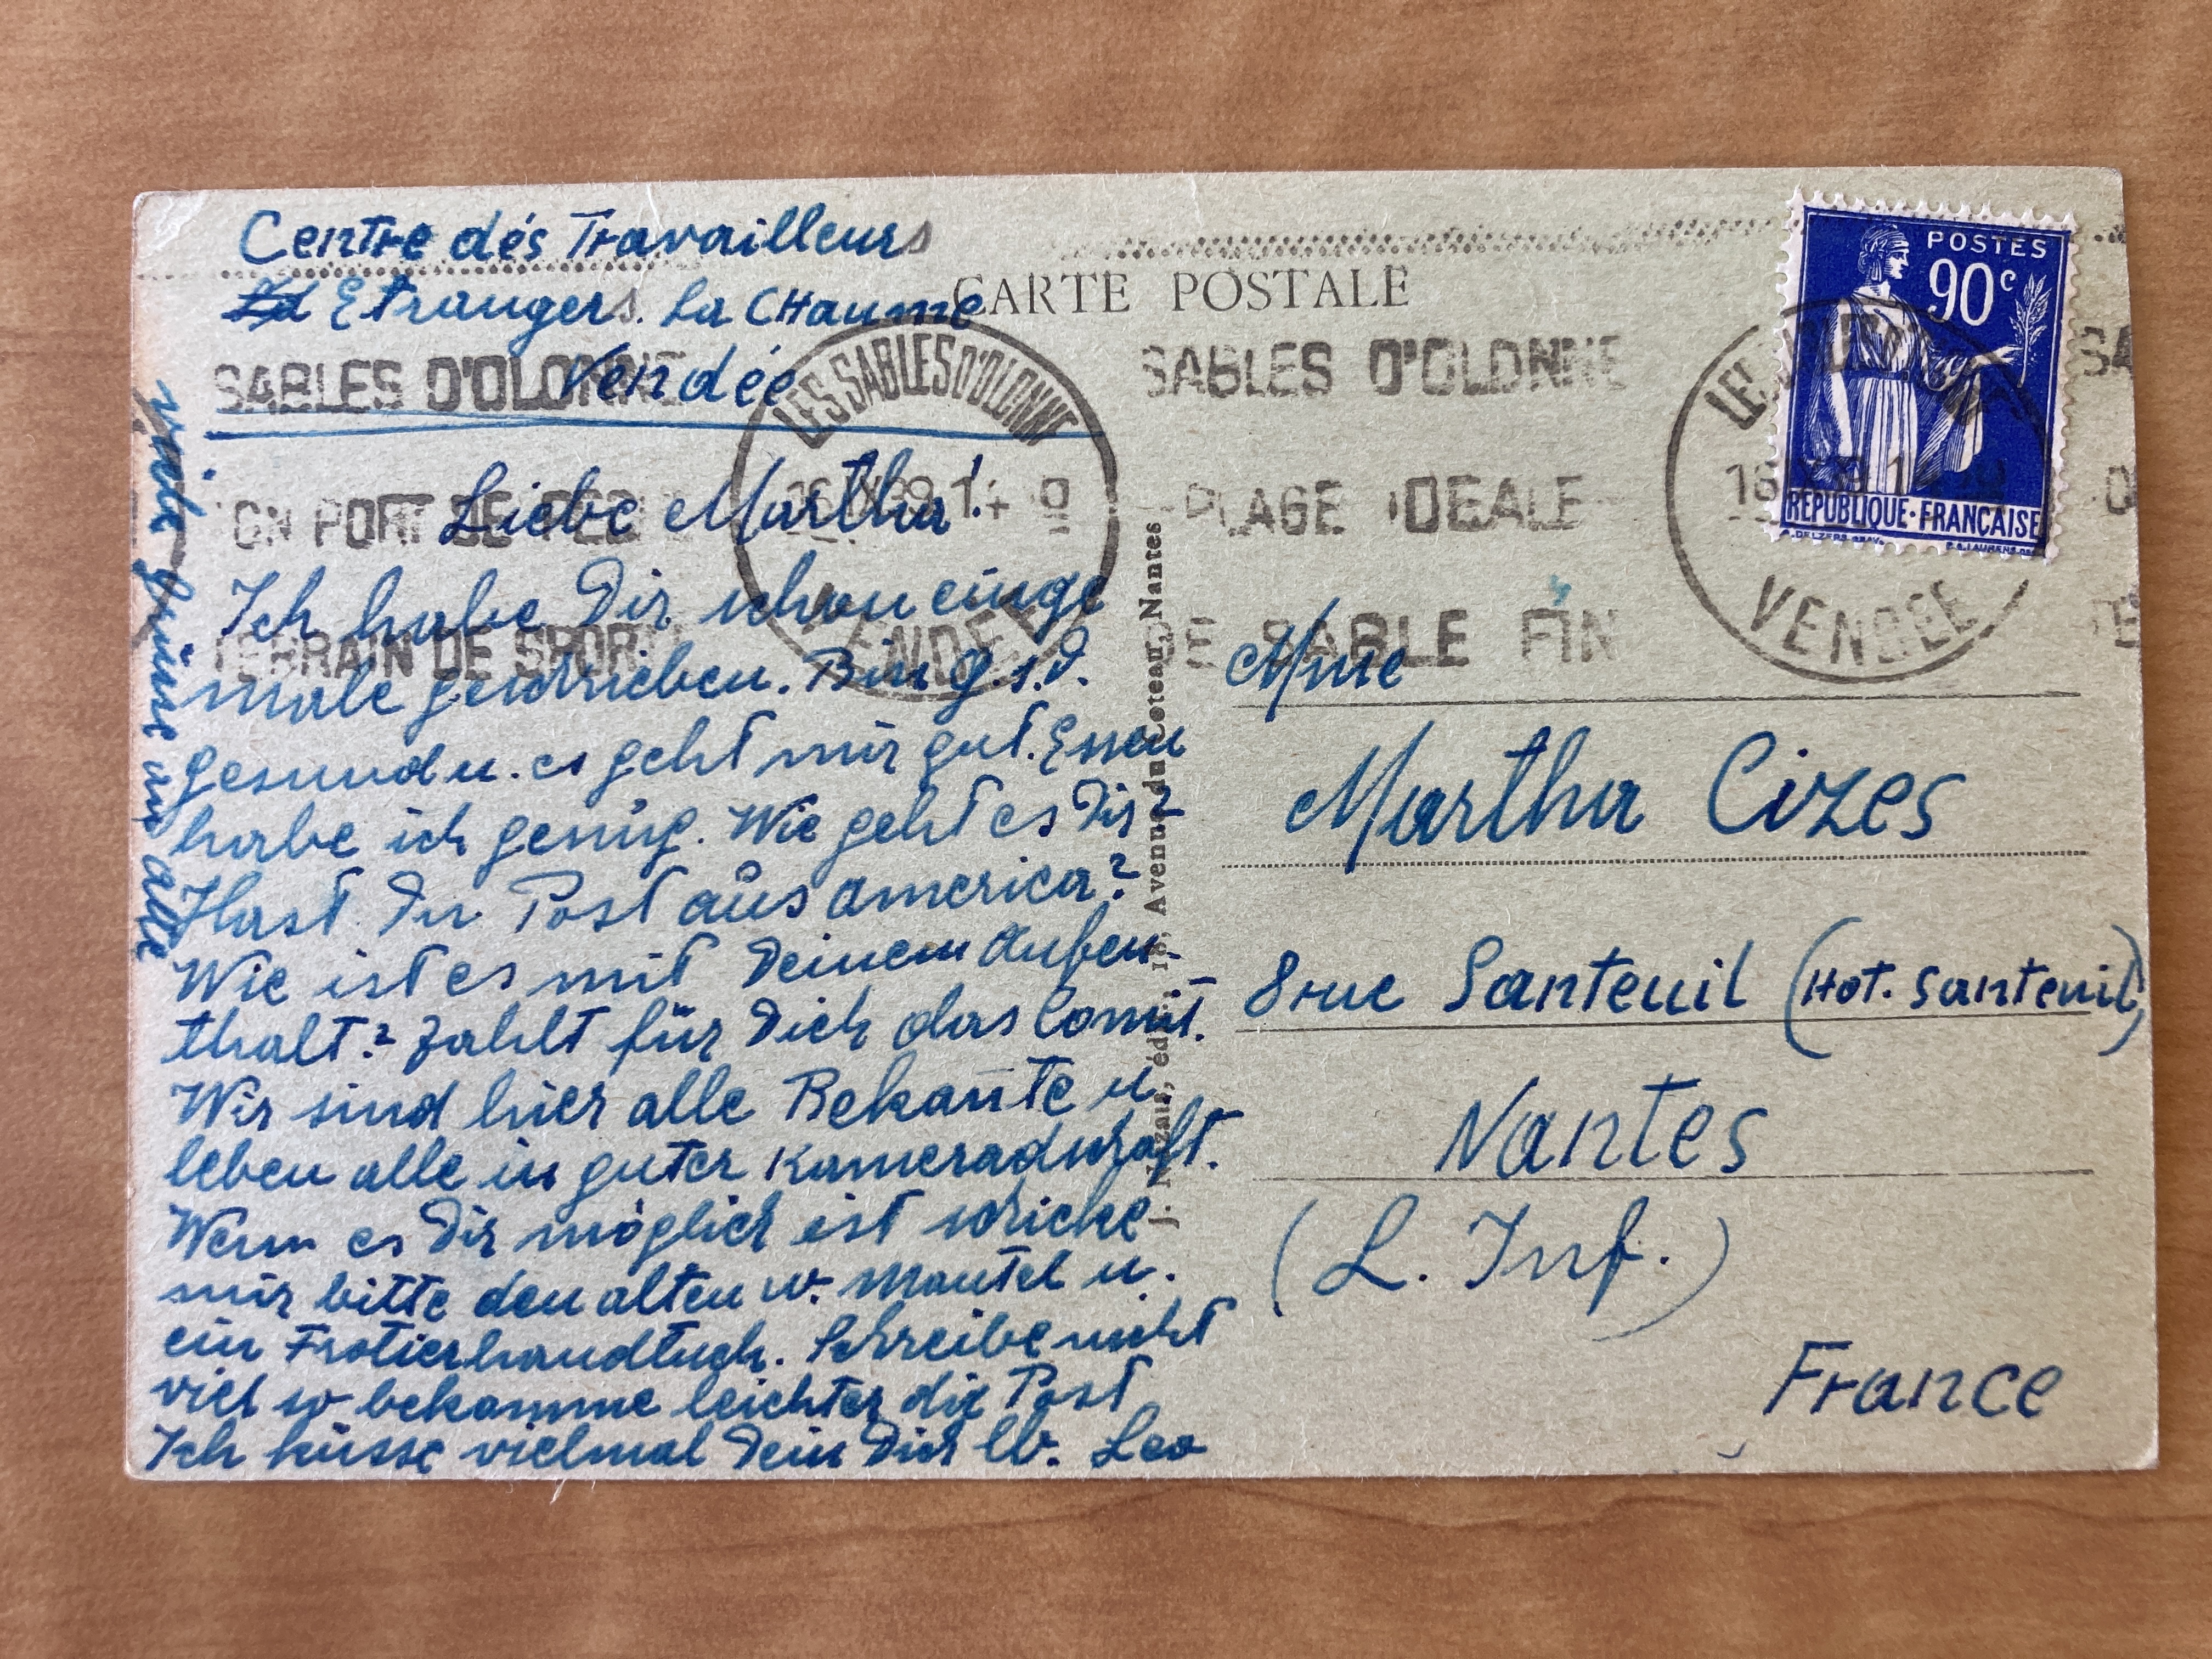 Centre dés Travailleurs
Etrangers. La CHaume
Vendée
CARTE POSTALE
POSTES
90c
REPUBLIQUE·FRANÇAISE
SABLES D'OLONNE
LES SABLES D'OLONNE
SABLES D'OLONNE
SON PORT DE
14
PLAGE IDEALE
16
TERRAIN DE SPORT
VENDEE
DE SABLE FIN
VENDEE
Liebe Martha!
Ich habe Dir schon einge
male geschrieben. Bin G.s.d.
gesund u. es geht mir gut. Essen
habe ich genüg. Wie geht es Dir?
Hast Du Post aus America?
Wie ist es mit Deinem Aufen-
thalt? Zahlt für Dich das Comit.
Wir sind hier alle Bekan̄te u.
leben alle in guter Kameradschaft.
Wenn es Dir möglich ist schicke
mir bitte den alten w. Mantel u.
ein Frotierhandtugh. Schreibe nicht
viel so bekomme leichter die Post
Ich küsse vielmal Dein Dich lb. Leo
Grüsse an alle
J. Nozais, édit., 18, Avenue du Coteau, Nantes
Mme
Martha Cizes
8 rue Santeuil (Hot. Santeuil)
Nantes
(L. Inf.)
France